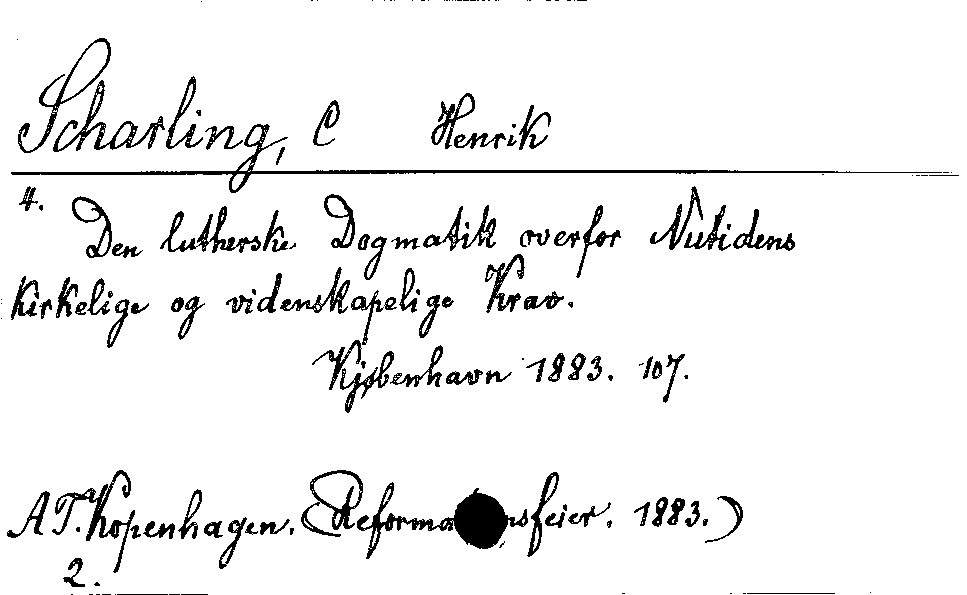 Scharling, C Henrik
4.
Den lutherske Dogmatik overfor Nutidens
kirkelige og videnskapelige Krav.
Kjøbenhavn 1883. 107.
A T. Kopenhagen. (Reformationsfeier. 1883.)
2.